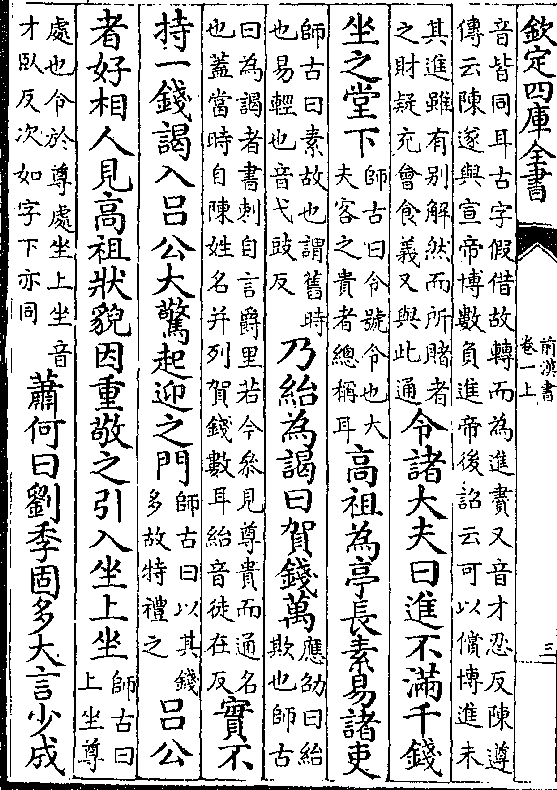 欽定四庫全書
前漢書
卷一上
三
音皆同耳古字假借故轉而為進賮又音才忍反陳遵
傳云陳遂與宣帝博數負進帝後詔云可以償博進未
其進雖有别解然而所賭者
之財疑充會食義又與此通
令諸大夫曰進不滿千錢
坐之堂下
師古曰令號令也大
夫客之貴者總稱耳
高祖為亭長素易諸吏
師古曰素故也謂舊時
也易輕也音弋豉反
乃紿為謁曰賀錢萬
應劭曰紿
欺也師古
曰為謁者書刺自言爵里若今叅見尊貴而通名
也蓋當時自陳姓名并列賀錢數耳紿音徒在反
實不
持一錢謁入呂公大驚起迎之門
師古曰以其錢
多故特禮之
呂公
者好相人見高祖狀貌因重敬之引入坐上坐
師古曰
上坐尊
處也令於尊處坐上坐音
才臥反次如字下亦同
蕭何曰劉季固多大言少成